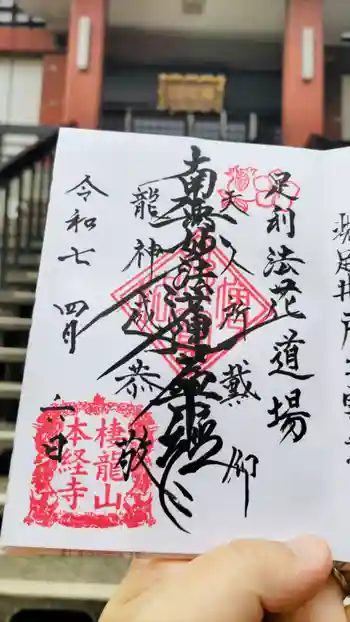 足利法花道場
天人所戴仰
南無妙法蓮華経
龍神咸恭敬
令和七 四月 六日
棲龍山
本経寺